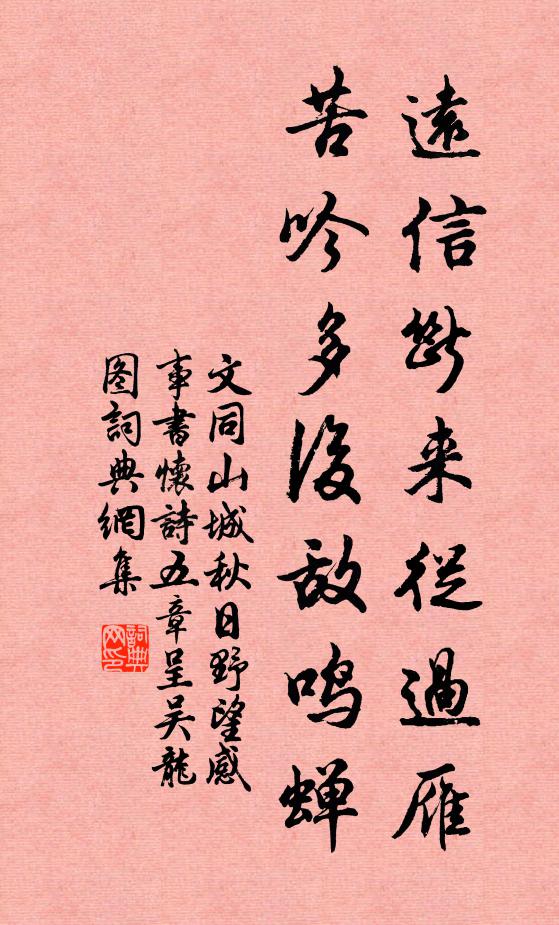 遠信斷来從過雁
苦吟多後敵鳴蝉
文同山城秋日野望感
事書懷詩五章呈吴龍
图詞典網集
詞典网印